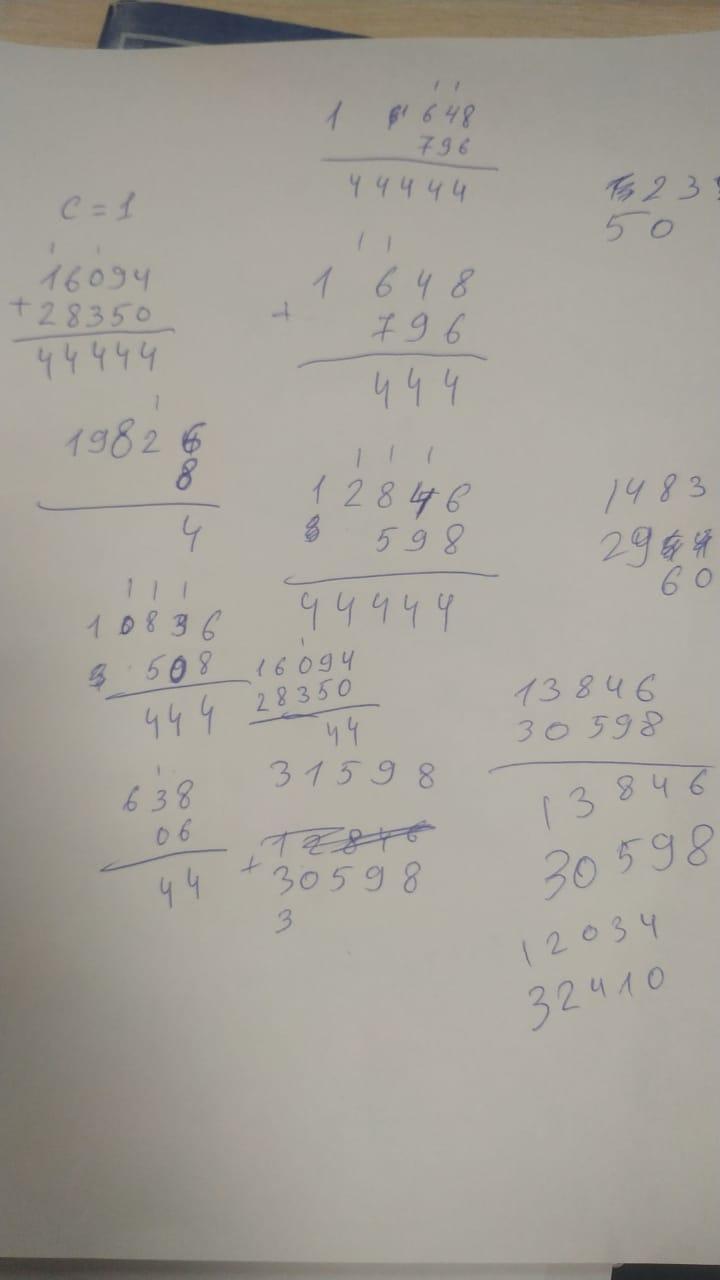 1 648
796
44444
C = 1
1 1
16094
+ 28350
44444
1 1
1 648
+ 796
444
1
1982 6
8
4
1 1 1
12846
3 598
44444
1 1 1
10836
3 508
444
1
16094
28350
44
1
638
06
44
31598
12846
+ 30598
3
23
50
1483
29
60
13846
30598
13846
30598
12034
32410